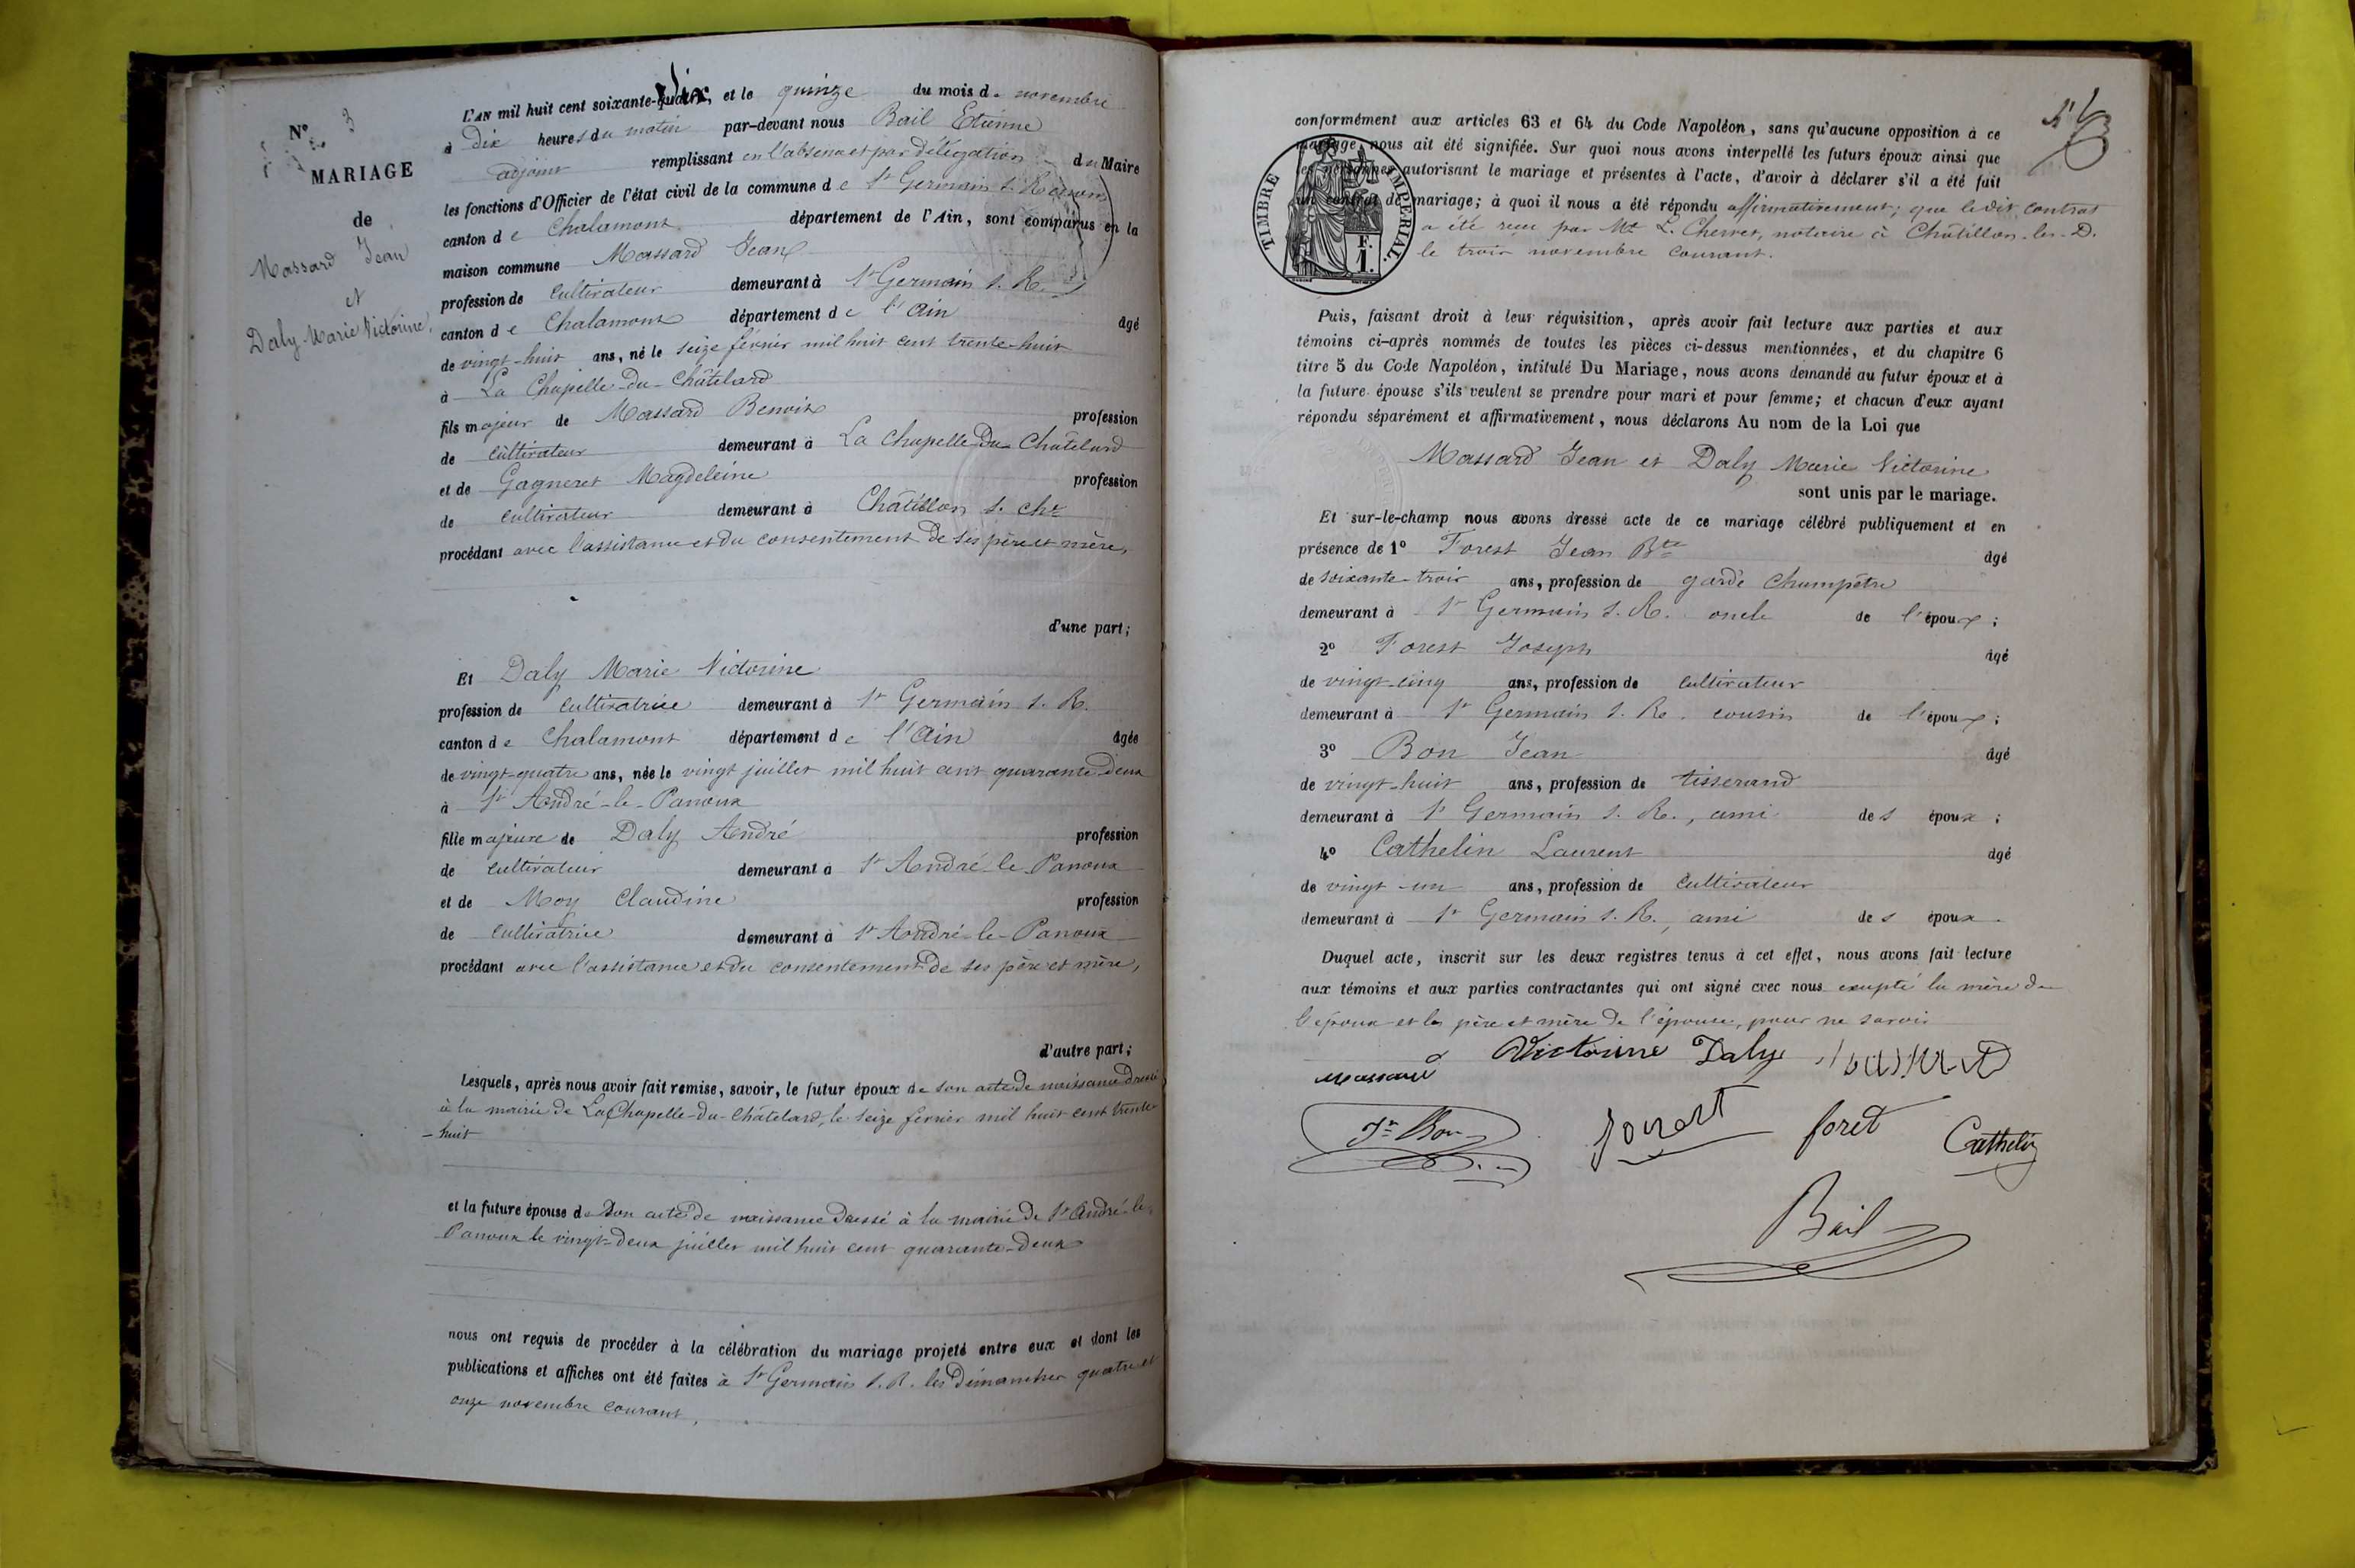 N° 3
MARIAGE
de
Massard Jean
et
Daly Marie Victorine
L'AN mil huit cent soixante-Six, et le quinze du mois de novembre
à Dix heures du matin par-devant nous Bail Etienne
adjoint remplissant en l'absence et par délégation du Maire
les fonctions d'Officier de l'état civil de la commune de St Germain s. Renon
canton de Chalamont département de l'Ain, sont comparus en la
maison commune Massard Jean
profession de Cultivateur demeurant à St Germain s. R.
canton de Chalamont département de l'Ain âgé
de vingt-huit ans, né le seize février mil huit cent trente-huit
à La Chapelle-du-Châtelard
fils majeur de Massard Benoit profession
de cultivateur demeurant à La Chapelle-du-Châtelard
et de Gagneret Magdeleine profession
de cultivateur demeurant à Châtillon s. Che
procédant avec l'assistance et du consentement de ses père et mère,
d'une part;
Et Daly Marie Victorine
profession de cultivatrice demeurant à St Germain s. R.
canton de Chalamont département de l'Ain âgée
de vingt-quatre ans, née le vingt juillet mil huit cent quarante-deux
à St André-le-Panoux
fille majeure de Daly André profession
de cultivateur demeurant à St André-le-Panoux
et de Moy Claudine profession
de cultivatrice demeurant à St André-le-Panoux
procédant avec l'assistance et du consentement de ses père et mère,
d'autre part;
Lesquels, après nous avoir fait remise, savoir, le futur époux de son acte de naissance dressé
à la mairie de La Chapelle-du-Châtelard, le seize février mil huit cent trente
-huit
et la future épouse de son acte de naissance dressé à la mairie de St André-le-
Panoux le vingt-deux juillet mil huit cent quarante-deux
nous ont requis de procéder à la célébration du mariage projeté entre eux et dont les
publications et affiches ont été faites à St Germain s. R. les dimanches quatre et
onze novembre courant,
conformément aux articles 63 et 64 du Code Napoléon, sans qu'aucune opposition à ce
mariage nous ait été signifiée. Sur quoi nous avons interpellé les futurs époux ainsi que
les personnes autorisant le mariage et présentes à l'acte, d'avoir à déclarer s'il a été fait
un contrat de mariage; à quoi il nous a été répondu affirmativement; que ledit contrat
a été reçu par Mt L. Chervet, notaire à Châtillon-les-D.
le trois novembre courant.
TIMBRE IMPERIAL.
F.
1.
Puis, faisant droit à leur réquisition, après avoir fait lecture aux parties et aux
témoins ci-après nommés de toutes les pièces ci-dessus mentionnées, et du chapitre 6
titre 5 du Code Napoléon, intitulé Du Mariage, nous avons demandé au futur époux et à
la future épouse s'ils veulent se prendre pour mari et pour femme; et chacun d'eux ayant
répondu séparément et affirmativement, nous déclarons Au nom de la Loi que
Massard Jean et Daly Marie Victorine
sont unis par le mariage.
Et sur-le-champ nous avons dressé acte de ce mariage célébré publiquement et en
présence de 1° Forest Jean Bte âgé
de soixante-trois ans, profession de garde champêtre
demeurant à St Germain s. R. oncle de l'époux;
2° Forest Joseph âgé
de vingt-cinq ans, profession de cultivateur
demeurant à St Germain s. Re. cousin de l'époux;
3° Bon Jean âgé
de vingt-huit ans, profession de tisserand
demeurant à St Germain s. Re., ami des époux;
4° Cathelin Laurent âgé
de vingt-un ans, profession de cultivateur
demeurant à St Germain s. R., ami des époux.
Duquel acte, inscrit sur les deux registres tenus à cet effet, nous avons fait lecture
aux témoins et aux parties contractantes qui ont signé avec nous excepté la mère de
l'époux et les père et mère de l'épouse, pour ne savoir
Massard Victorine Daly
Jn Bon forest foret Cathelin
Bail